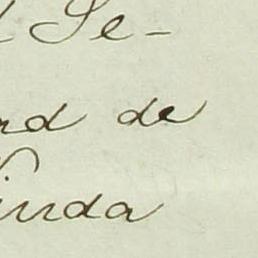 Se-
nd de
inda